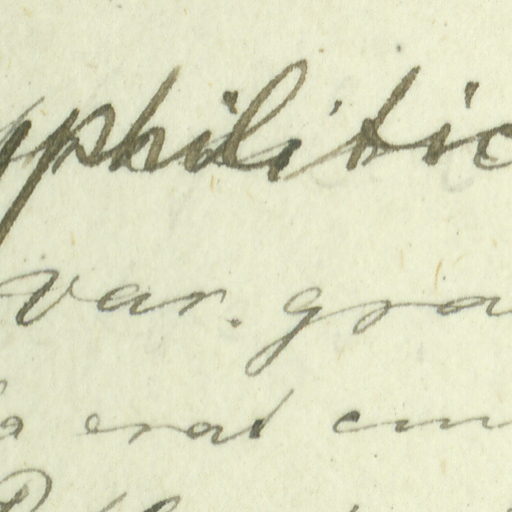 yphilitic
var. gra
a erat cum